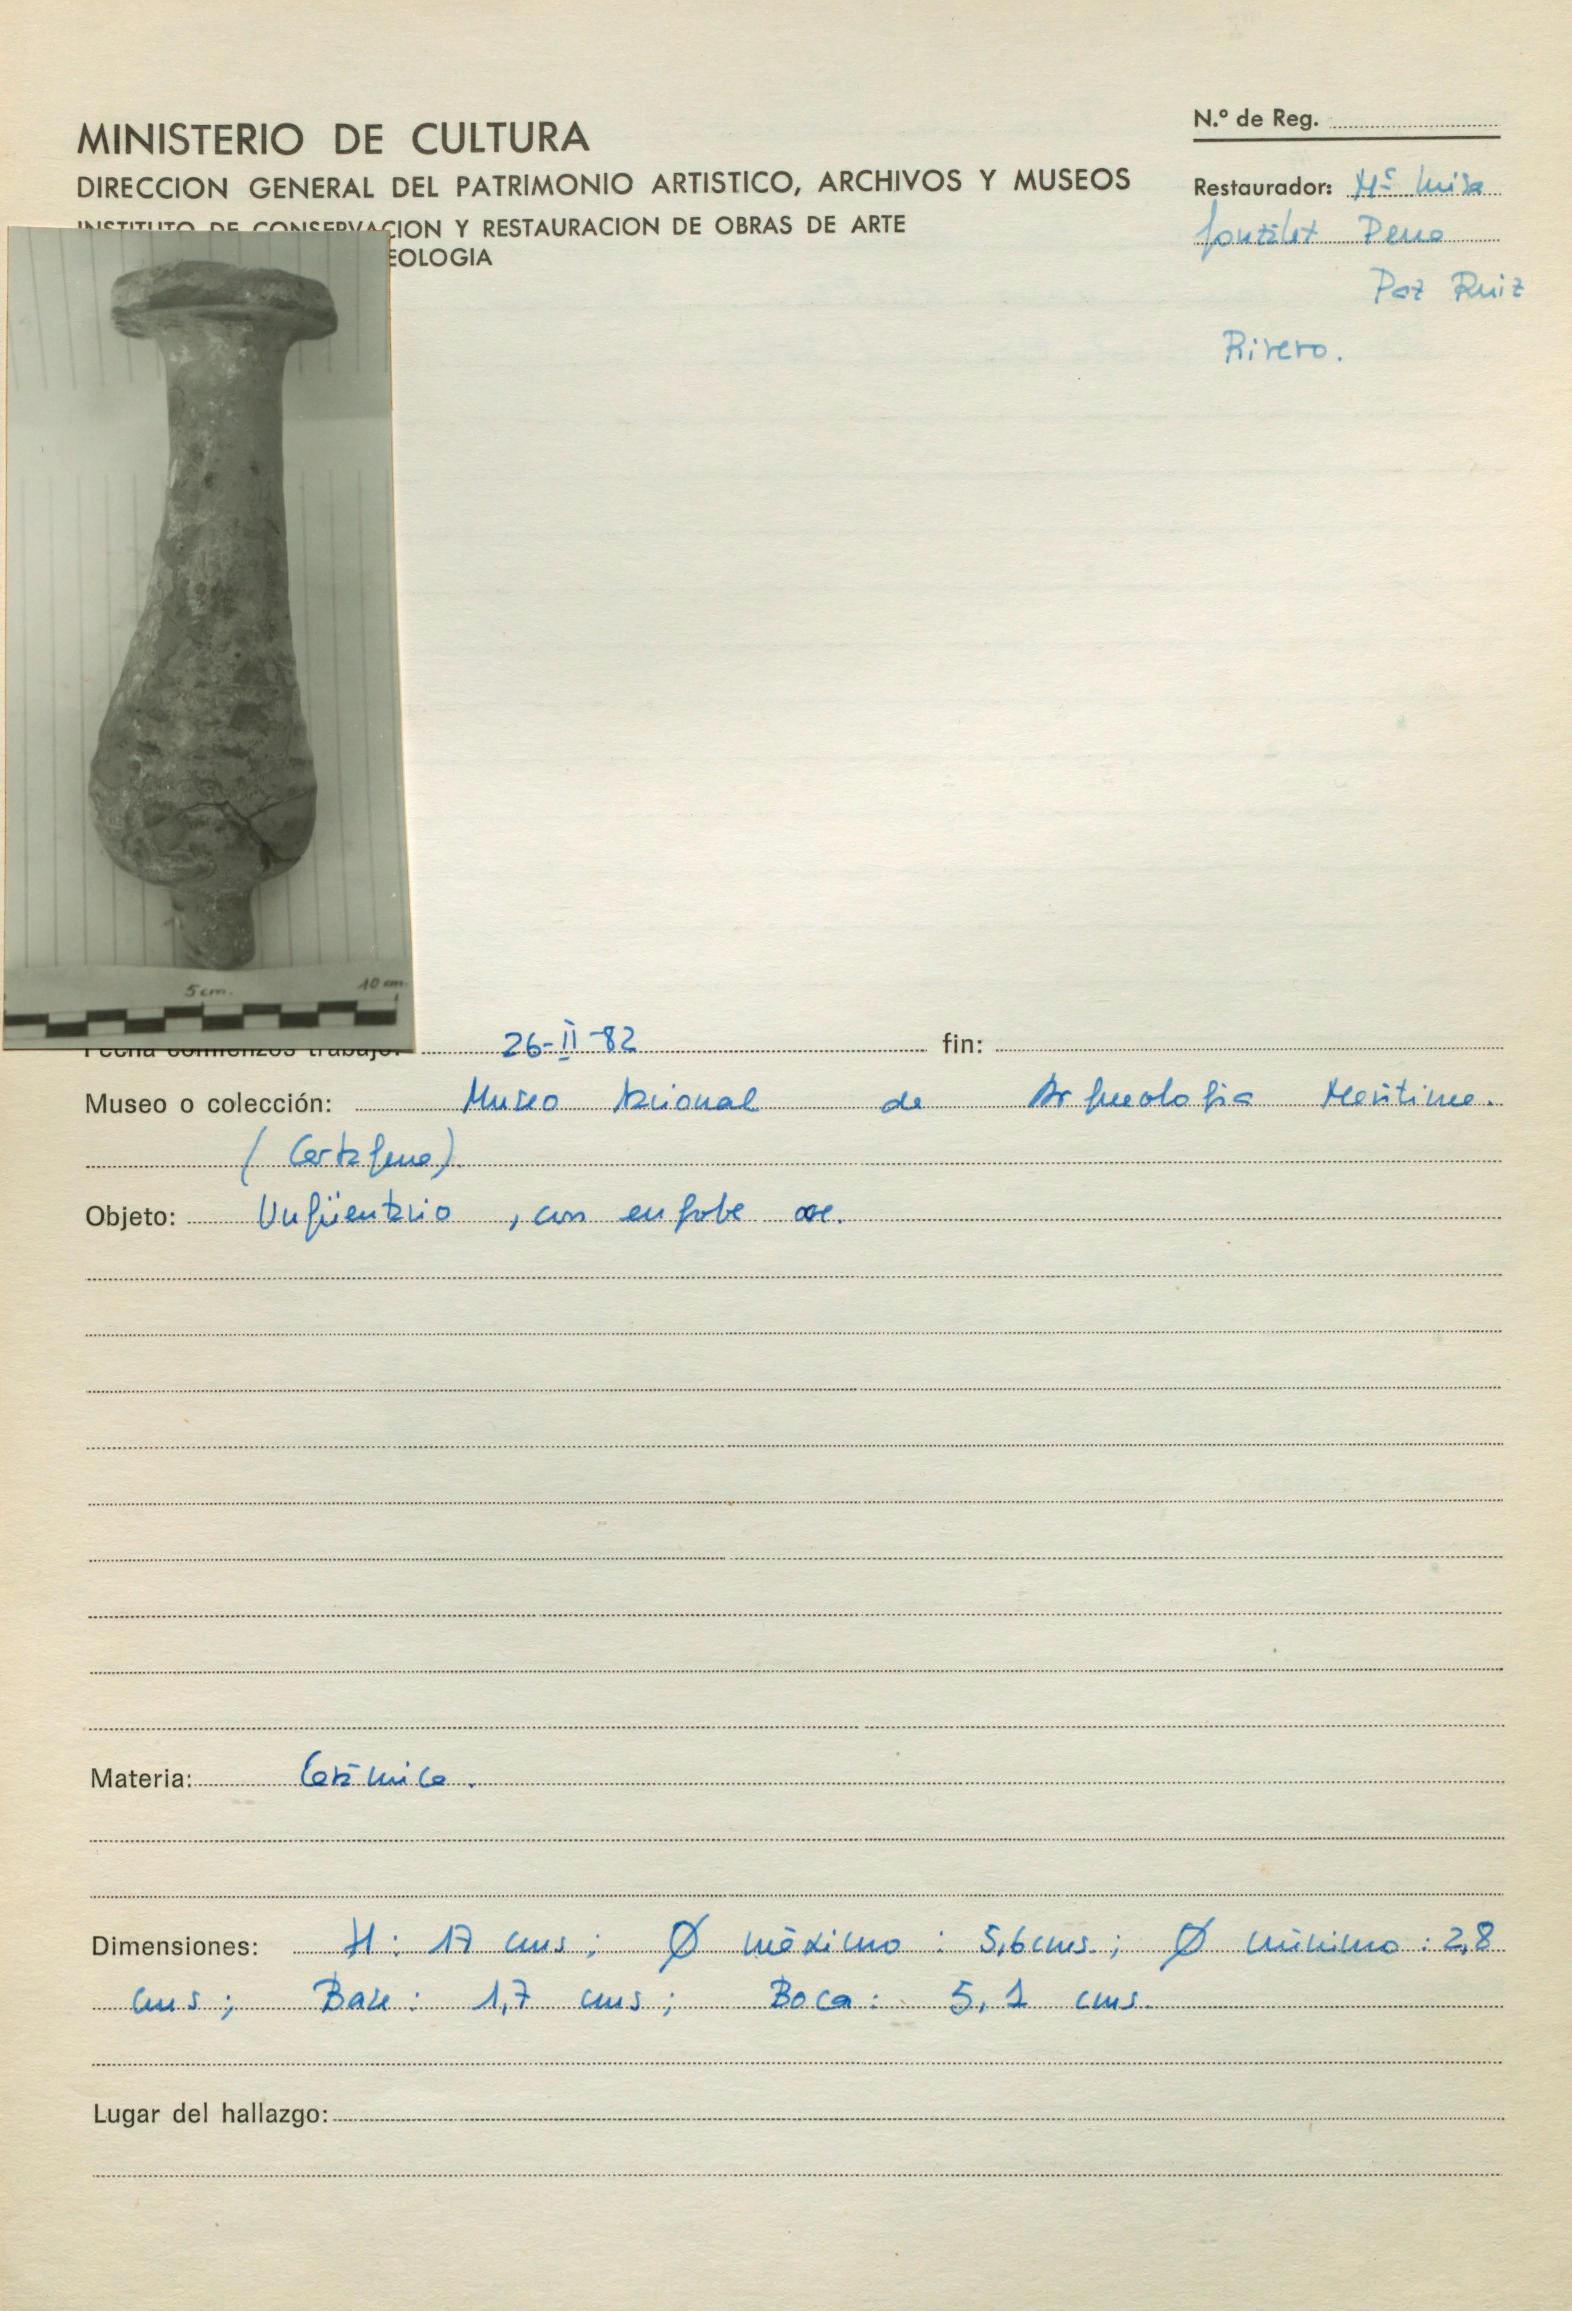 MINISTERIO DE CULTURA
DIRECCION GENERAL DEL PATRIMONIO ARTISTICO, ARCHIVOS Y MUSEOS
INSTITUTO DE CONSERVACION Y RESTAURACION DE OBRAS DE ARTE
EOLOGIA
N.º de Reg.
Restaurador: Mª Luisa
González Pena
Paz Ruiz
Rivero.
5 cm. 10 cm.
Fecha comienzos trabajo: 26-II-82 fin:
Museo o colección: Museo Nacional de Arqueología Marítima.
(Cartagena).
Objeto: Ungüentario, con engobe
Materia: Cerámica.
Dimensiones: H: 17 cms; Ø máximo: 5,6 cms; Ø mínimo: 2,8
cms; Base: 1,7 cms; Boca: 5,1 cms.
Lugar del hallazgo: